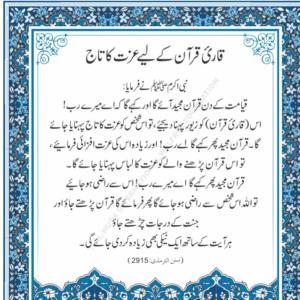 قارئ قرآن کے لیے عزت کا تاج
نبی اکرم ﷺ نے فرمایا:
قیامت کے دن قرآن مجید آئے گا اور کہے گا کہ اے میرے رب!
اس (قارئ قرآن) کو زیور پہنا دیجیے، تو اس شخص کو عزت کا تاج پہنایا جائے
گا۔ قرآن مجید پھر کہے گا اے رب! اور زیادہ اس کی عزت افزائی فرمایئے،
تو اس قرآن پڑھنے والے کو عزت کا لباس پہنایا جائے گا۔
قرآن مجید پھر کہے گا اے میرے رب! اس سے راضی ہو جایئے
تو اللہ اس شخص سے راضی ہو جائے گا پھر فرمائے گا قرآن پڑھتے جاؤ اور
جنت کے درجات چڑھتے جاؤ
ہر آیت کے ساتھ ایک نیکی بھی زیادہ کر دی جائے گی۔
(سنن الترمذی: 2915)